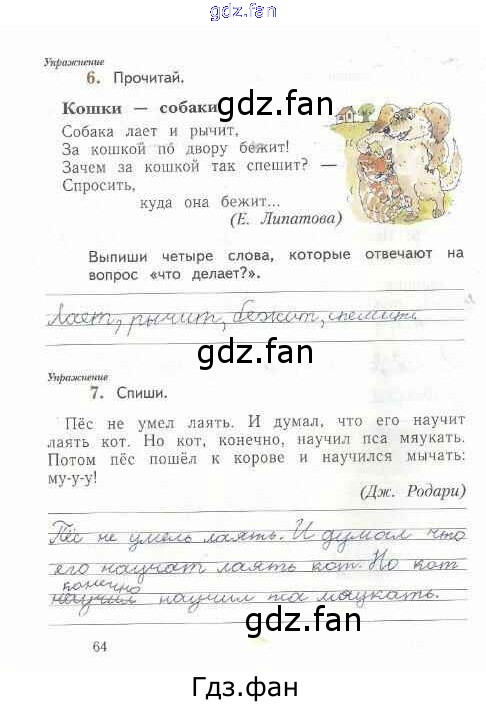 gdz.fan
Упражнение
6. Прочитай.
gdz.fan
Кошки — собаки
Собака лает и рычит,
За кошкой по двору бежит!
Зачем за кошкой так спешит? —
Спросить,
куда она бежит...
(Е. Липатова)
gdz.fan
Выпиши четыре слова, которые отвечают на
вопрос «что делает?».
лает, рычит, бежит, спешит
gdz.fan
Упражнение
7. Спиши.
Пёс не умел лаять. И думал, что его научит
лаять кот. Но кот, конечно, научил пса мяукать.
Потом пёс пошёл к корове и научился мычать:
му-у-у!
(Дж. Родари)
gdz.fan
Пёс не умель лаять. И думал что
его научат лаять кот. Но кот
конечно
научил научил пса мяукать.
gdz.fan
64
Гдз.фан